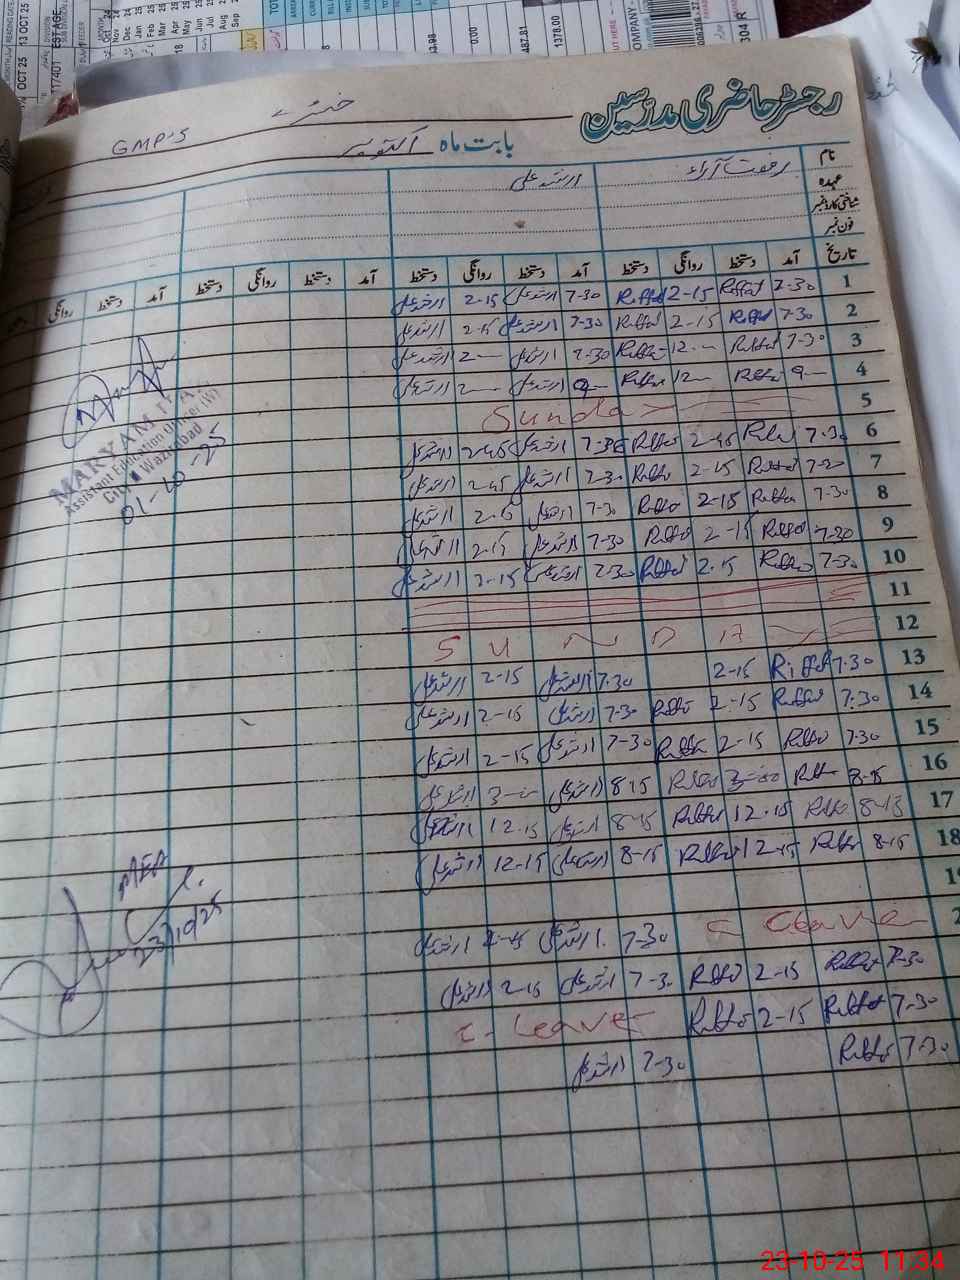 OCT 25
13 OCT 25
117401
EST AGE
0.00
487.81
1378.00
COMPANY
304 R
رجسٹر حاضری مدرسین
GMP'S
بابت ماہ اکتوبر
نام رفعت آراء ارشد علی
عہدہ
شناختی کارڈ نمبر
فون نمبر
تاریخ آمد دستخط روانگی دستخط آمد دستخط روانگی دستخط آمد دستخط روانگی دستخط آمد دستخط روانگی
1 7-30 Riffat 2-15 Riffat 7-30 ارشد علی 2-15 ارشد علی
2 7-30 Riffat 2-15 Riffat 7-30 ارشد علی 2-15 ارشد علی
3 7-30 Riffat 12-- Riffat 7-30 ارشد علی 2-- ارشد علی
4 9-- Riffat 12-- Riffat 9-- ارشد علی 2-- ارشد علی
5 Sunday
6 7-30 Riffat 2-45 Riffat 7-30 ارشد علی 2-45 ارشد علی
7 7-30 Riffat 2-15 Riffat 7-30 ارشد علی 2-45 ارشد علی
8 7-30 Riffat 2-15 Riffat 7-30 ارشد علی 2-15 ارشد علی
9 7-30 Riffat 2-15 Riffat 7-30 ارشد علی 2-15 ارشد علی
10 7-30 Riffat 2-15 Riffat 7-30 ارشد علی 2-15 ارشد علی
11
12 SUNDAY
13 7-30 Riffat 2-15 7-30 ارشد علی 2-15 ارشد علی
14 7-30 Riffat 2-15 Riffat 7-30 ارشد علی 2-15 ارشد علی
15 7-30 Riffat 2-15 Riffat 7-30 ارشد علی 2-15 ارشد علی
16 8-15 Riffat 3-00 Riffat 8-15 ارشد علی 3-- ارشد علی
17 8-15 Riffat 12-15 Riffat 8-15 ارشد علی 12-15 ارشد علی
18 8-15 Riffat 12-15 Riffat 8-15 ارشد علی 12-15 ارشد علی
C Leave 7-30 ارشد علی ارشد علی
7-30 Riffat 2-15 Riffat 7-30 ارشد علی 2-15 ارشد علی
7-30 Riffat 2-15 Riffat C-Leave
7-30 Riffat 7-30 ارشد علی
Assistant Education Officer (W)
City Wazirabad
01-10-25
MEA
23/10/25
23-10-25 11:34